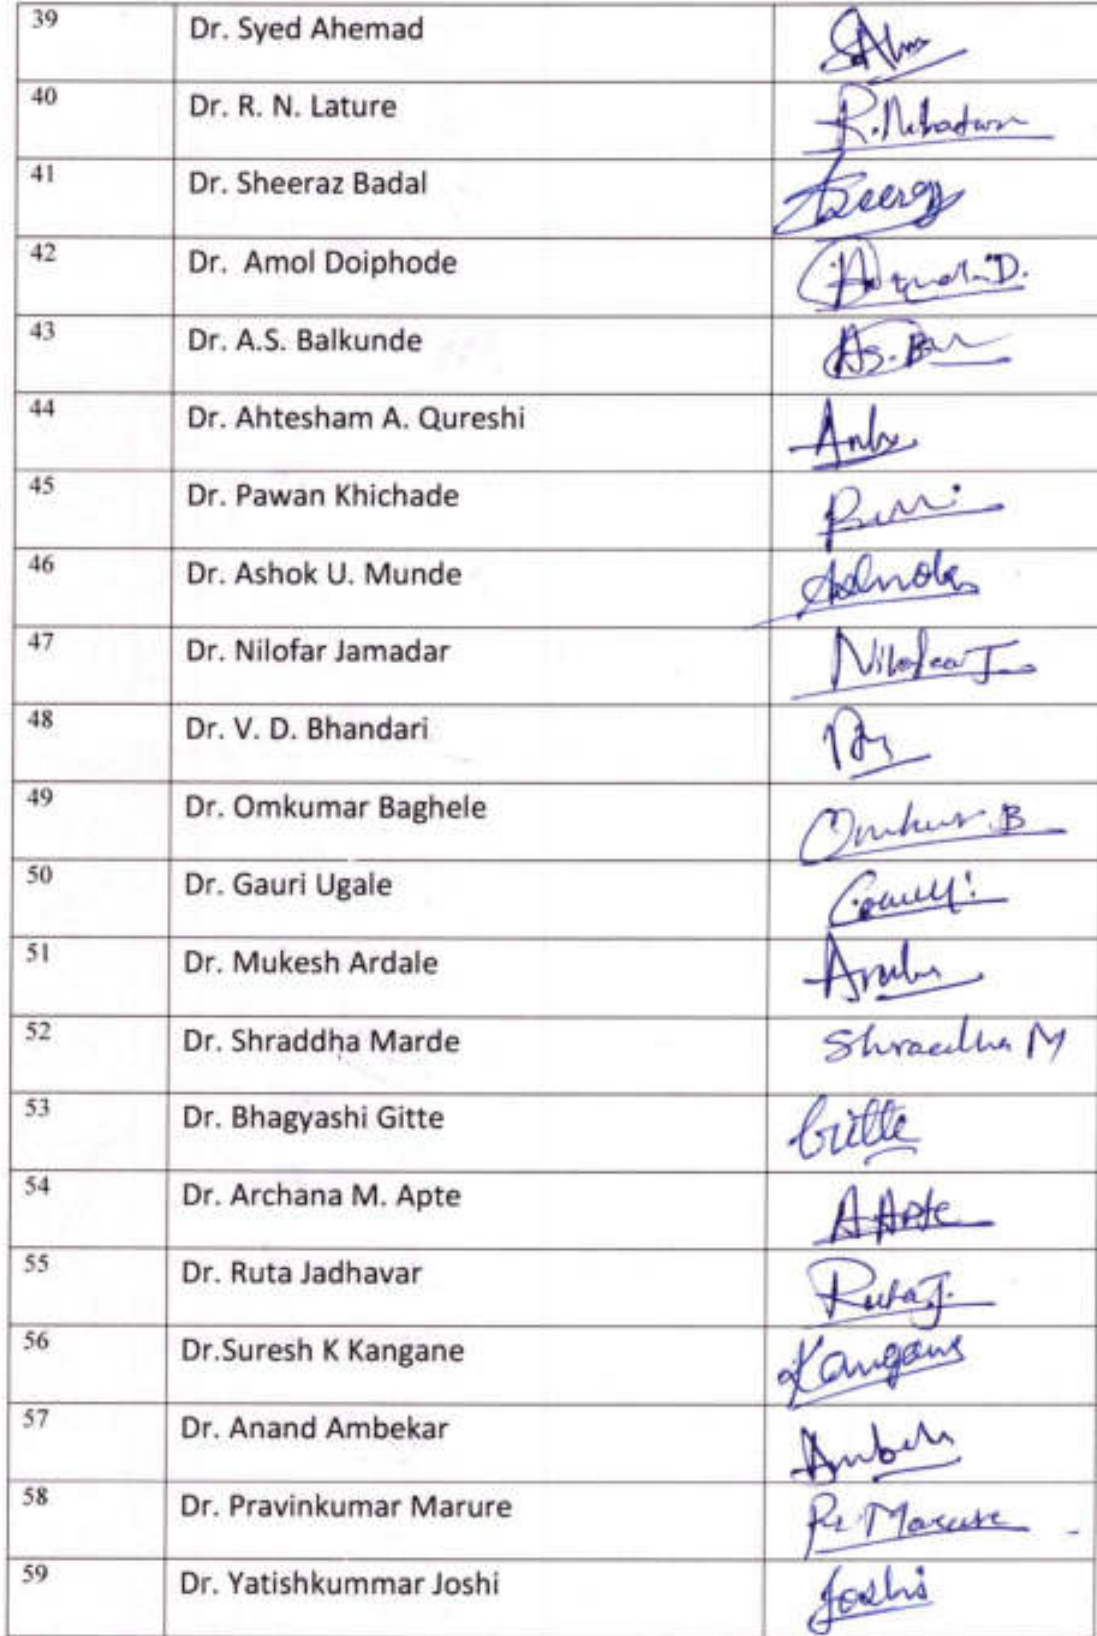 39 Dr. Syed Ahemad
40 Dr. R. N. Lature
41 Dr. Sheeraz Badal
42 Dr. Amol Doiphode D.
43 Dr. A.S. Balkunde
44 Dr. Ahtesham A. Qureshi
45 Dr. Pawan Khichade
46 Dr. Ashok U. Munde
47 Dr. Nilofar Jamadar
48 Dr. V. D. Bhandari
49 Dr. Omkumar Baghele
50 Dr. Gauri Ugale
51 Dr. Mukesh Ardale
52 Dr. Shraddha Marde Shraddha M
53 Dr. Bhagyashi Gitte Gitte
54 Dr. Archana M. Apte A Apte
55 Dr. Ruta Jadhavar Ruta J.
56 Dr.Suresh K Kangane Kangane
57 Dr. Anand Ambekar
58 Dr. Pravinkumar Marure Pr. Marure
59 Dr. Yatishkummar Joshi Joshi